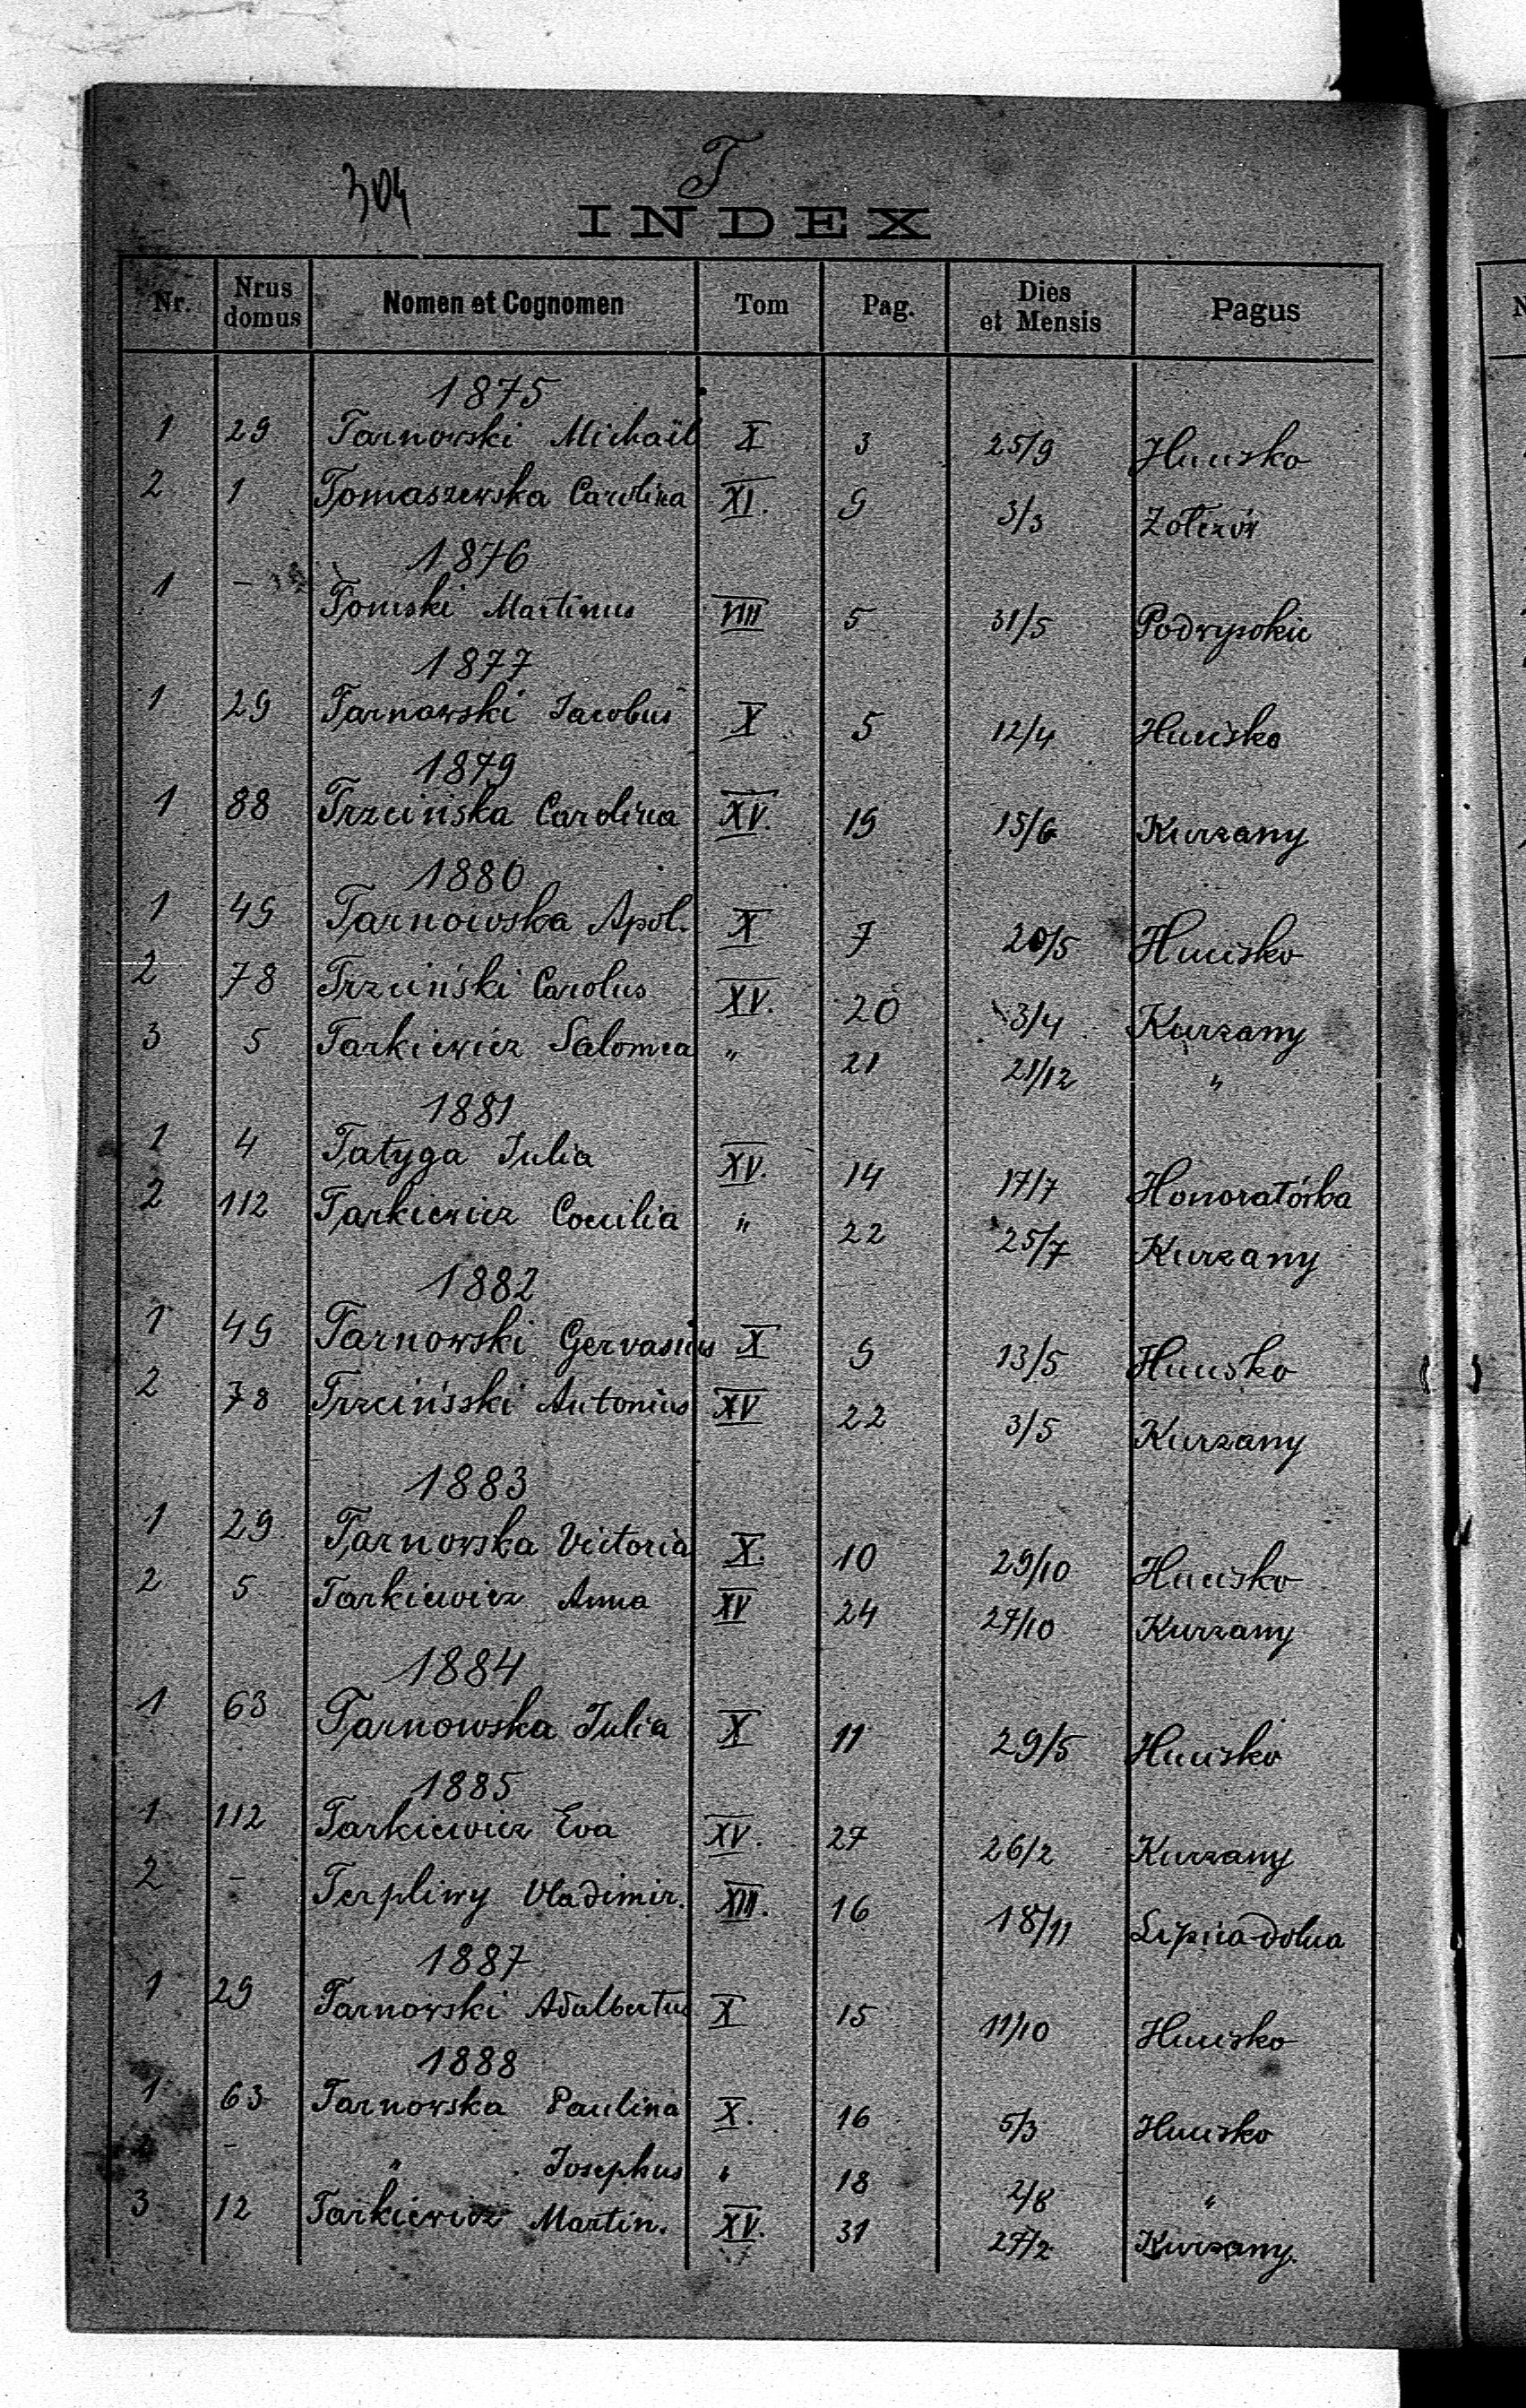 304
T
INDEX
Nr. Nrus domus Nomen et Cognomen Tom Pag. Dies et Mensis Pagus
1875
1 29 Tarnowski Michaël X 3 25/9 Hucisko
2 1 Tomaszewska Carolina XI. 9 3/3 Żołczów
1876
1 - Tomski Martinus VIII 5 31/5 Podwysokie
1877
1 29 Tarnowski Jacobus X 5 12/4 Hucisko
1879
1 88 Trzcińska Carolina XV. 19 15/6 Kurzany
1880
1 49 Tarnowska Apol. X 7 20/5 Hucisko
2 78 Trzciński Carolus XV. 20 3/4 Kurzany
3 5 Tarkiewicz Salomea " 21 21/12 "
1881
1 4 Tatyga Julia XV. 14 17/7 Honoratówka
2 112 Tarkiewicz Coecilia " 22 25/7 Kurzany
1882
1 49 Tarnowski Gervasius X 9 13/5 Hucisko
2 78 Trzcińsski Antonius XV 22 3/5 Kurzany
1883
1 29 Tarnowska Victoria X. 10 29/10 Hucisko
2 5 Tarkiewicz Anna XV 24 27/10 Kurzany
1884
1 63 Tarnowska Julia X 11 29/5 Hucisko
1885
1 112 Tarkiewicz Eva XV. 27 26/2 Kurzany
2 - Terpliwy Vladimir. XIII. 16 18/11 Lipica dolna
1887
1 29 Tarnowski Adalbertus X 15 11/10 Hucisko
1888
1 63 Tarnowska Paulina X. 16 5/3 Hucisko
- " Josephus " 18 2/8 "
3 12 Tarkiewicz Martin. XV. 31 27/2 Kurzany.